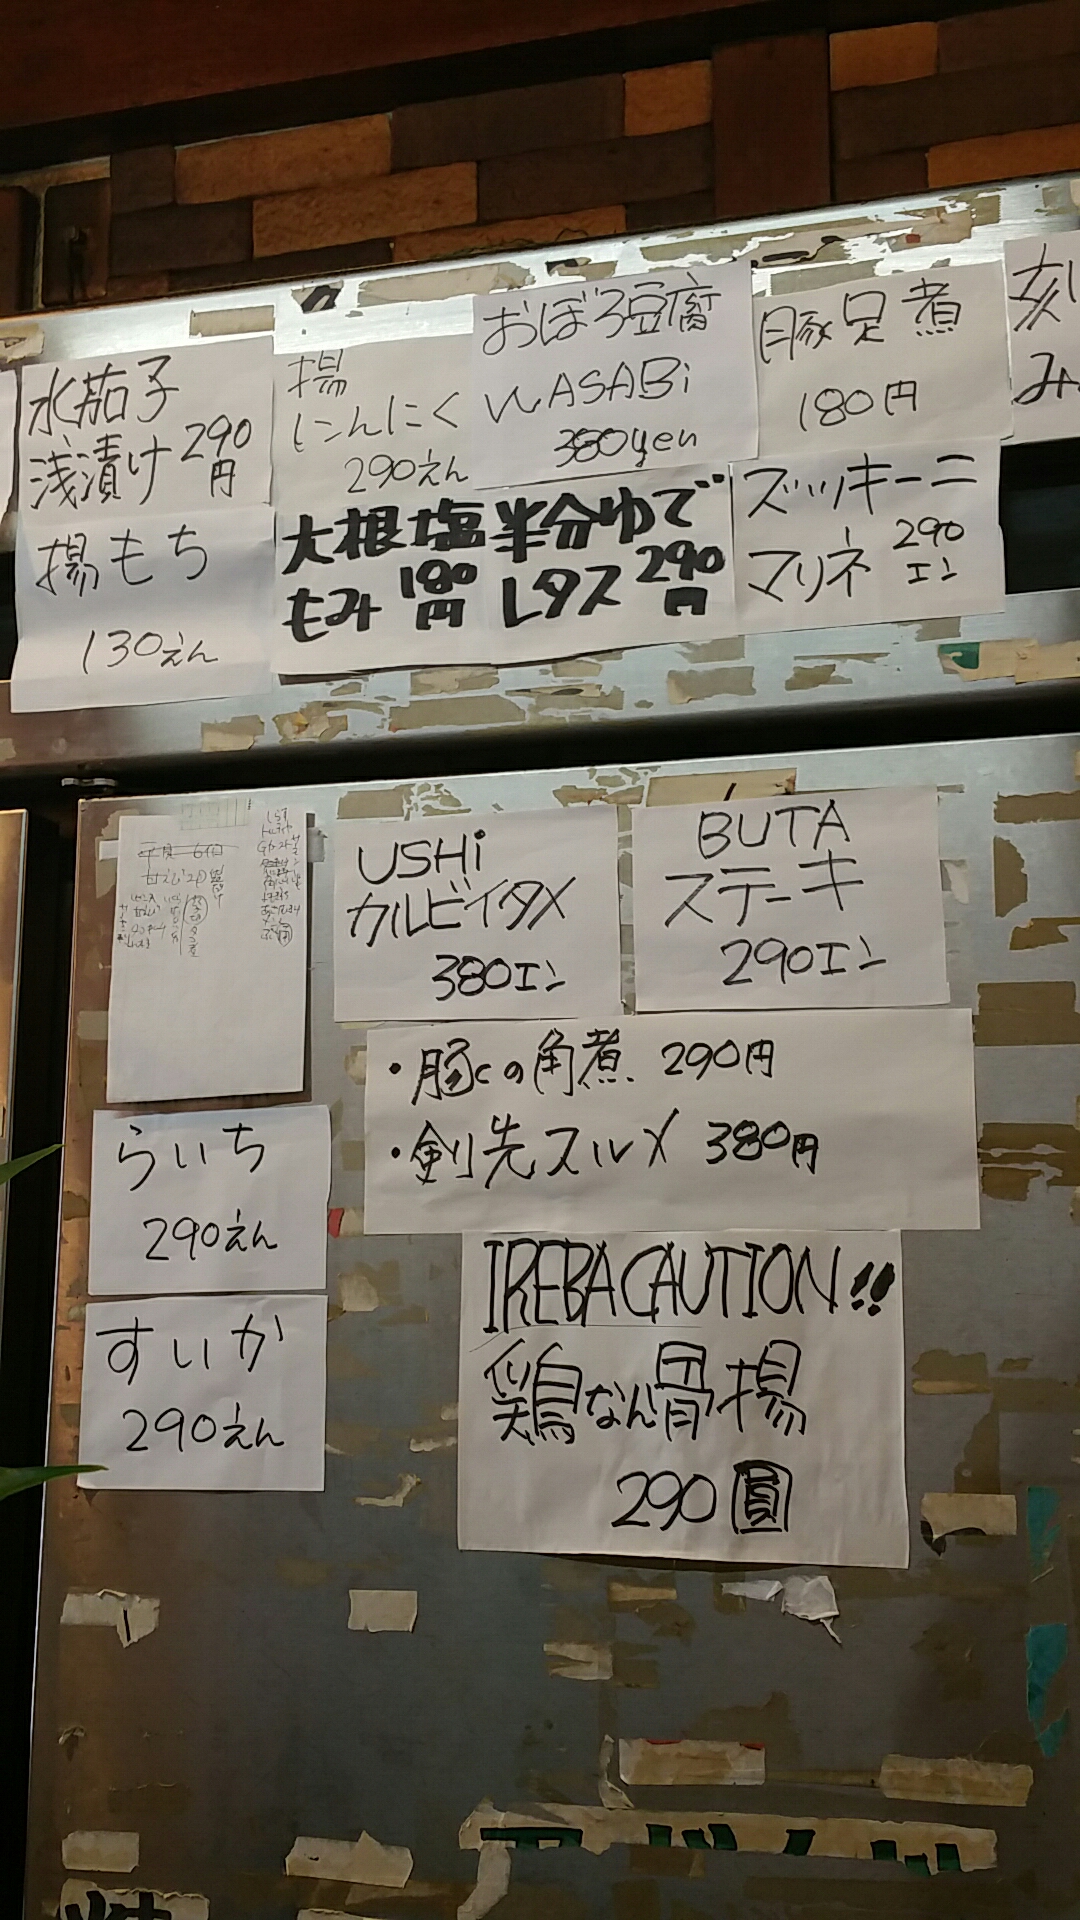 水茄子
浅漬け 290円
揚
にんにく
290えん
おぼろ豆腐
WASABi
380yen
豚足煮
180円
刻
み
揚もち
130えん
大根塩
もみ 180円
半分ゆで
レタス 290円
ズッキーニ
マリネ 290エン
USHi
カルビイタメ
380エン
BUTA
ステーキ
290エン
・豚cの角煮 290円
・剣先スルメ 380円
らいち
290えん
すいか
290えん
IREBA CAUTION!!
鶏なん骨揚
290圓